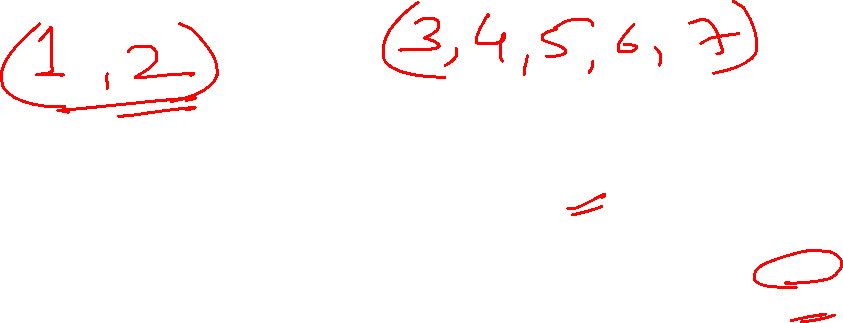 (1, 2) (3, 4, 5, 6, 7)